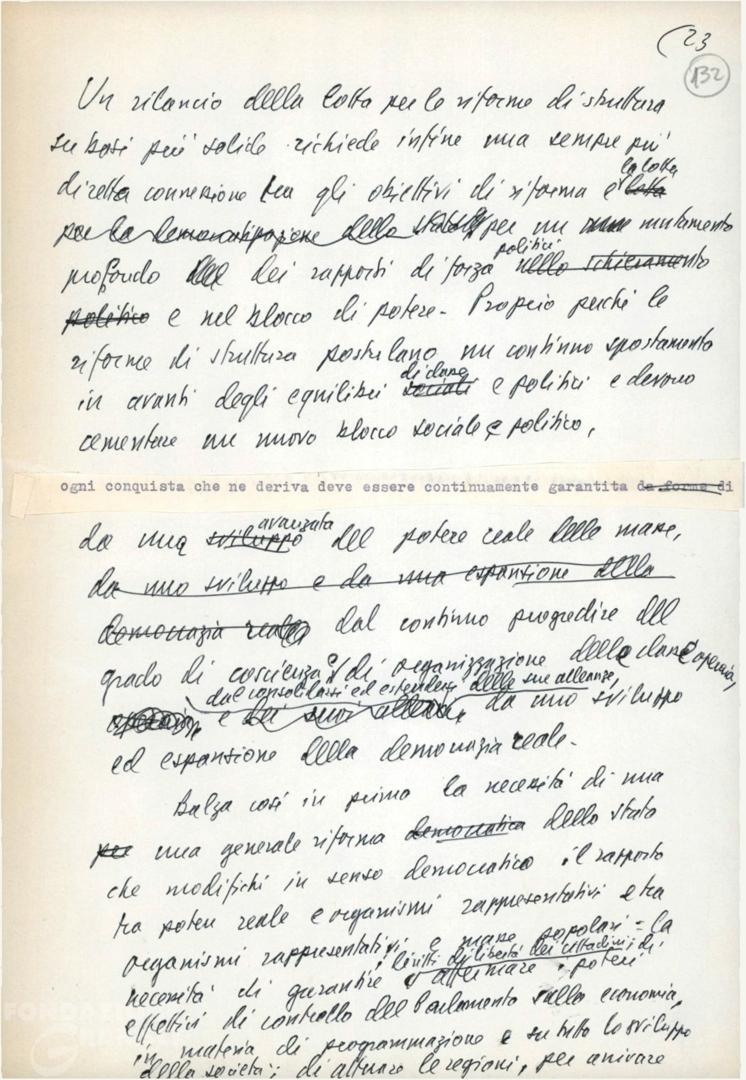 23
132
Un rilancio della lotta per le riforme di struttura
su basi più solide richiede infine una sempre più
la lotta
diretta connessione tra gli obiettivi di riforma e lotta
per la democratizzazione dello stato per un mutamento
politici
profondo dei rapporti di forza nello schieramento
politico e nel blocco di potere. Proprio perché le
riforme di struttura postulano un continuo spostamento
di classe
in avanti degli equilibri sociali e politici e devono
cementare un nuovo blocco sociale e politico,
ogni conquista che ne deriva deve essere continuamente garantita da forme di
avanzata
da una sviluppo del potere reale delle masse,
da uno sviluppo e da una espansione della
democrazia reale dal continuo progredire del
grado di coscienza e di organizzazione della classe operaia,
dal consolidarsi ed estendersi delle sue alleanze,
operaia, e dei suoi alleati, da uno sviluppo
ed espansione della democrazia reale.
Balza così in primo la necessità di una
per una generale riforma democratica dello stato
che modifichi in senso democratico il rapporto
tra potere reale e organismi rappresentativi e tra
organismi rappresentativi e masse popolari = la
i diritti di libertà dei cittadini; di
necessità di garantire affermare poteri
effettivi di controllo del Parlamento sulla economia,
in materia di programmazione e su tutto lo sviluppo
della società; di attuare le regioni, per arrivare
FONDAZIONE